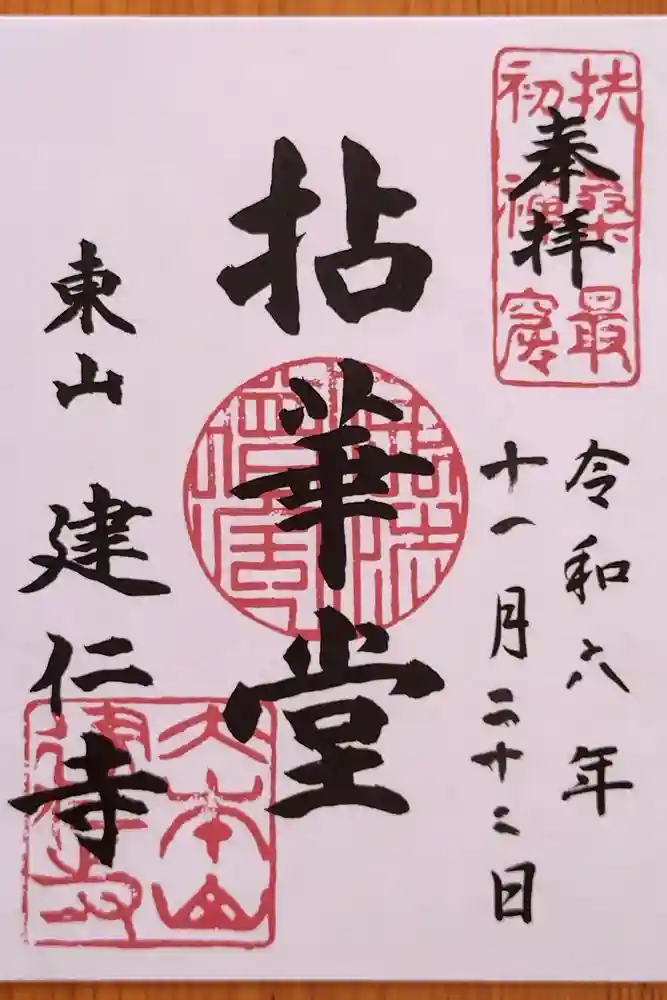 奉拝
扶桑最
初禅窟
令和六年
十一月二十二日
拈華堂
東山 建仁寺
大本山
建仁寺